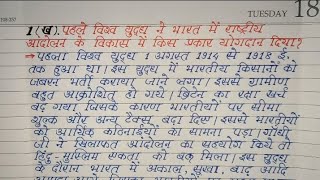 TUESDAY 18
1(ख). पहले विश्व युद्ध ने भारत में राष्ट्रीय
आंदोलन के विकास में किस प्रकार योगदान दिया?
→ पहला विश्व युद्ध 1 अगस्त 1914 से 1918 ई.
तक हुआ था। इस युद्ध में भारतीय किसानों को
जबरन भर्ती कराया जाने लगा। इससे ग्रामीण
बहुत आक्रोशित हो गये। ब्रिटेन का रक्षा खर्च
बढ़ गया जिसके कारण भारतीयों पर सीमा
शुल्क और अन्य टैक्स बढ़ा दिए। इससे भारतीयों
को आर्थिक कठिनाईयों का सामना पड़ा। गाँधी
जी ने खिलाफत आंदोलन का सहयोग किये तो
हिंदू-मुस्लिम एकता को बल मिला। इस युद्ध
के दौरान भारत में अकाल, सूखा, बाढ़ आदि